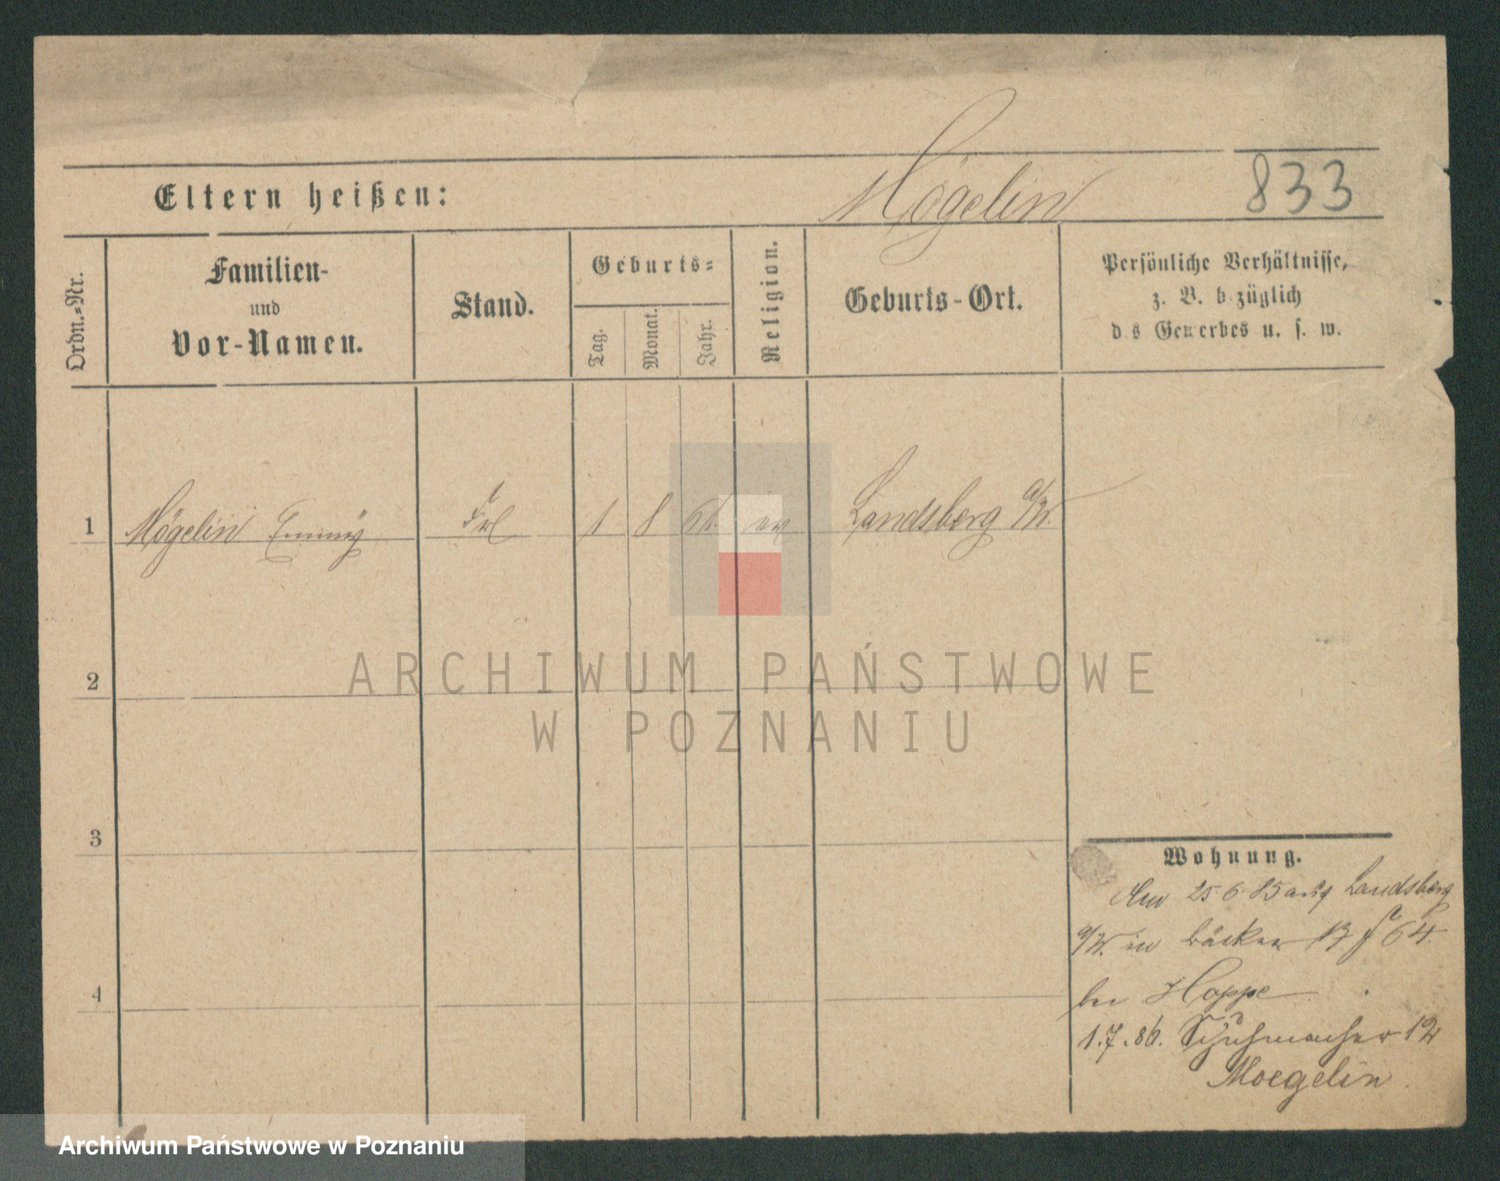 Mögelin
833
Eltern heißen:
Ordn.-Nr.
Familien-
und
Vor-Namen.
Stand.
Geburts-
Tag.
Monat.
Jahr.
Religion.
Geburts-Ort.
Persönliche Verhältnisse,
z. B. bezüglich
des Gewerbes u. s. w.
1 Mögelin Emmy Frl 1 8 61 ev Landsberg a/W.
2
3
4
ARCHIWUM PAŃSTWOWE
W POZNANIU
Wohnung.
25.6.85 aus Landsberg
a/W. in Bäcker 64.
bei Hoppe
1.7.86. Schuhmacher 12
Moegelin
Archiwum Państwowe w Poznaniu